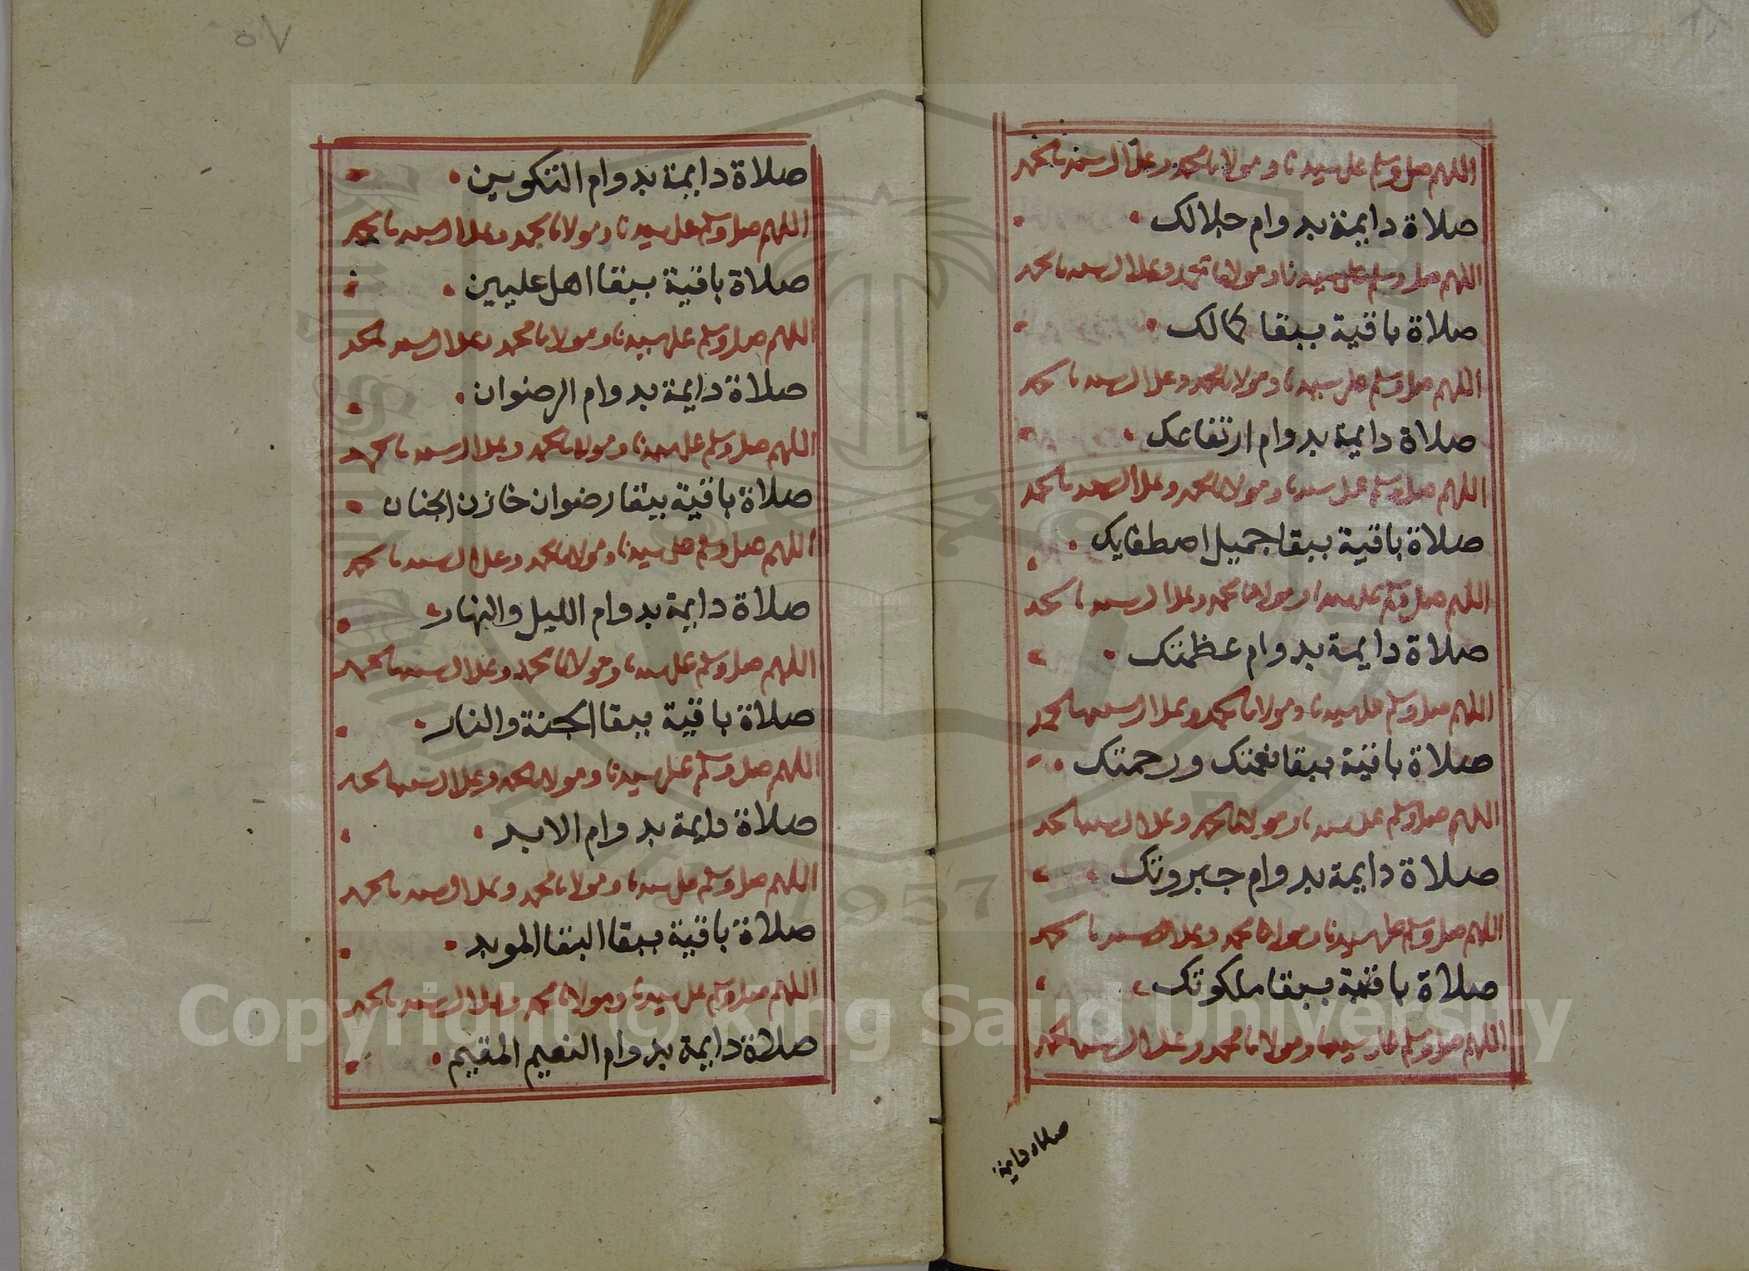 اللهم صل وسلم على سيدنا ومولانا محمد وعلى ال سيدنا محمد
صلاة دايمة بدوام جلالك
اللهم صل وسلم على سيدنا ومولانا محمد وعلى ال سيدنا محمد
صلاة باقية ببقا كمالك
اللهم صل وسلم على سيدنا ومولانا محمد وعلى ال سيدنا محمد
صلاة دايمة بدوام ارتفاعك
اللهم صل وسلم على سيدنا ومولانا محمد وعلى ال سيدنا محمد
صلاة باقية ببقا جميل اصطفايك
اللهم صل وسلم على سيدنا ومولانا محمد وعلى ال سيدنا محمد
صلاة دايمة بدوام عظمتك
اللهم صل وسلم على سيدنا ومولانا محمد وعلى ال سيدنا محمد
صلاة باقية ببقا نعمتك ورحمتك
اللهم صل وسلم على سيدنا ومولانا محمد وعلى ال سيدنا محمد
صلاة دايمة بدوام جبروتك
اللهم صل وسلم على سيدنا ومولانا محمد وعلى ال سيدنا محمد
صلاة باقية ببقا ملكوتك
اللهم صل وسلم على سيدنا ومولانا محمد وعلى ال سيدنا محمد
صلاة دايمة
٥٧
صلاة دايمة بدوام التكوين
اللهم صل وسلم على سيدنا ومولانا محمد وعلى ال سيدنا محمد
صلاة باقية ببقا اهل عليين
اللهم صل وسلم على سيدنا ومولانا محمد وعلى ال سيدنا محمد
صلاة دايمة بدوام الرضوان
اللهم صل وسلم على سيدنا ومولانا محمد وعلى ال سيدنا محمد
صلاة باقية ببقا رضوان خازن الجنان
اللهم صل وسلم على سيدنا ومولانا محمد وعلى ال سيدنا محمد
صلاة دايمة بدوام الليل والنهار
اللهم صل وسلم على سيدنا ومولانا محمد وعلى ال سيدنا محمد
صلاة باقية ببقا الجنة والنار
اللهم صل وسلم على سيدنا ومولانا محمد وعلى ال سيدنا محمد
صلاة دايمة بدوام الابد
اللهم صل وسلم على سيدنا ومولانا محمد وعلى ال سيدنا محمد
صلاة باقية ببقا البقا الموبد
اللهم صل وسلم على سيدنا ومولانا محمد وعلى ال سيدنا محمد
صلاة دايمة بدوام النعيم المقيم
Copyright © King Saud University
1957